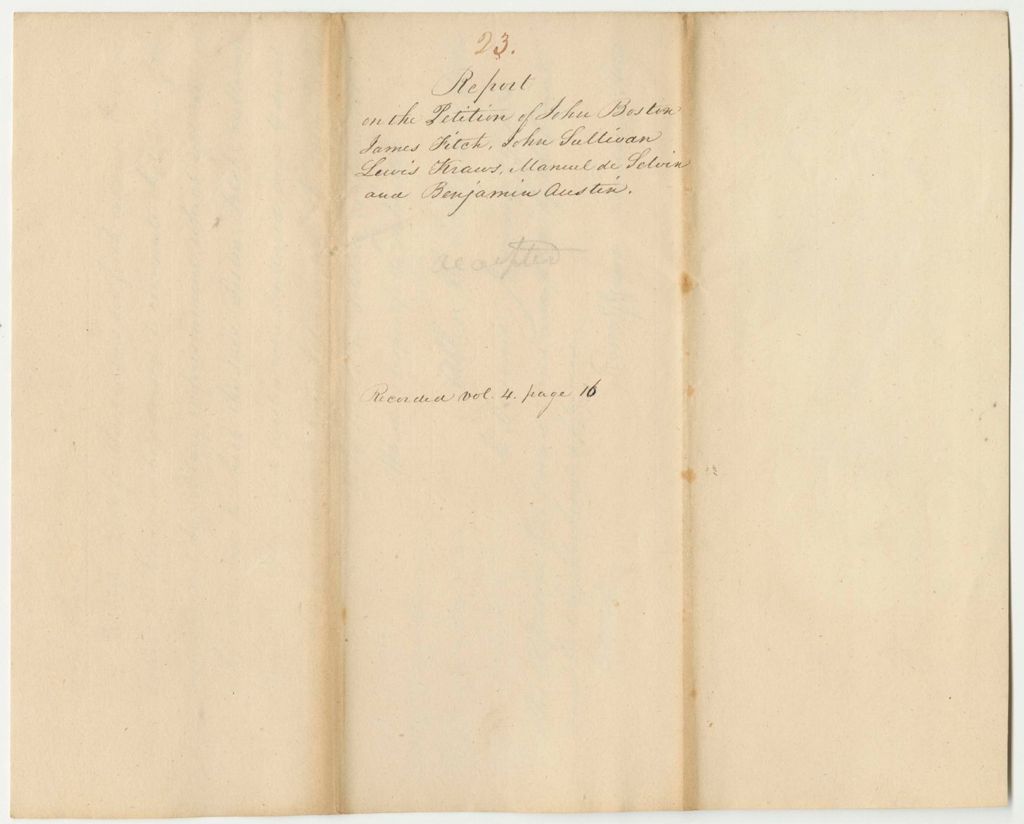 23.
Report
on the Petition of John Boston
James Fitch, John Sullivan
Lewis Kraus, Manuel de Selvin
and Benjamin Austin.
accepted
Recorded vol. 4. page 16